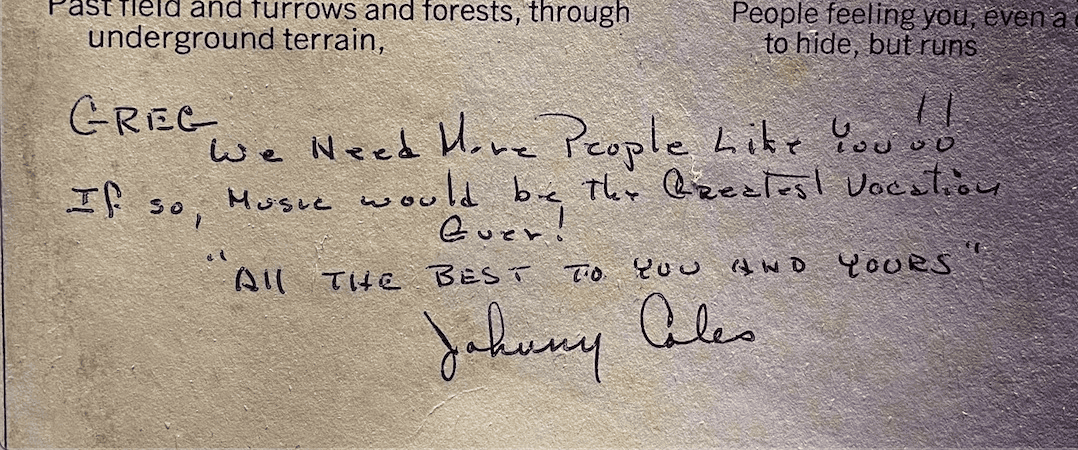 Past field and furrows and forests, through
underground terrain,
People feeling you, even a
to hide, but runs
GREG
We Need More People Like You!!
If so, Music would be the Greatest Vocation
Ever!
"All THE BEST TO YOU AND YOURS"
Johnny Coles